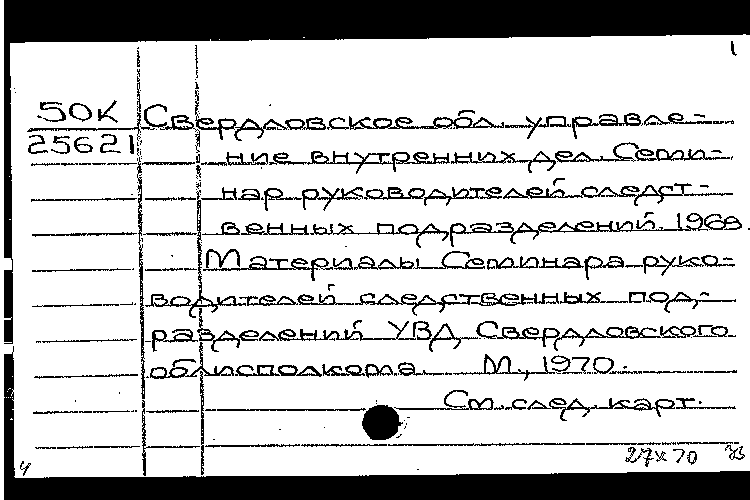 1
50К Свердловское обл. управле-
25621 ние внутренних дел. Семи-
нар руководителей следст-
венных подразделений. 1969.
Материалы Семинара руко-
водителей следственных под-
разделений УВД Свердловского
облисполкома. М., 1970.
См. след. карт.
4 27х70